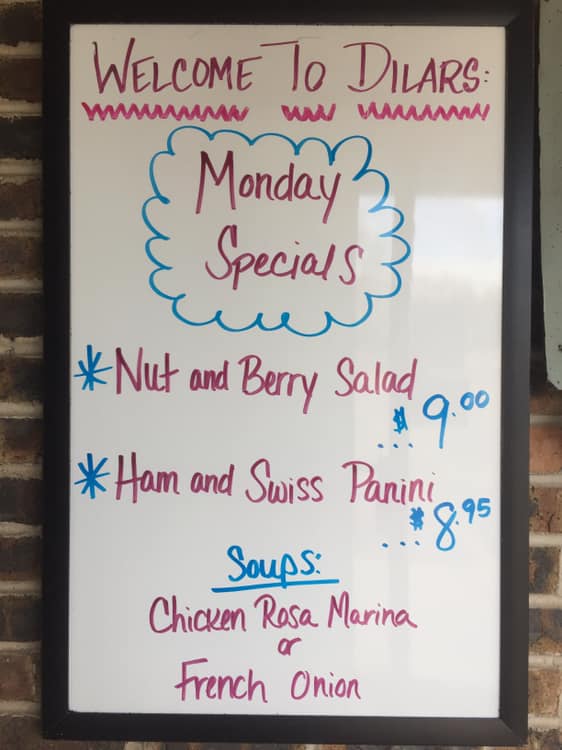 WELCOME TO DILARS:
Monday
Specials
* Nut and Berry Salad
... $9.00
* Ham and Swiss Panini
... $8.95
Soups:
Chicken Rosa Marina
or
French Onion